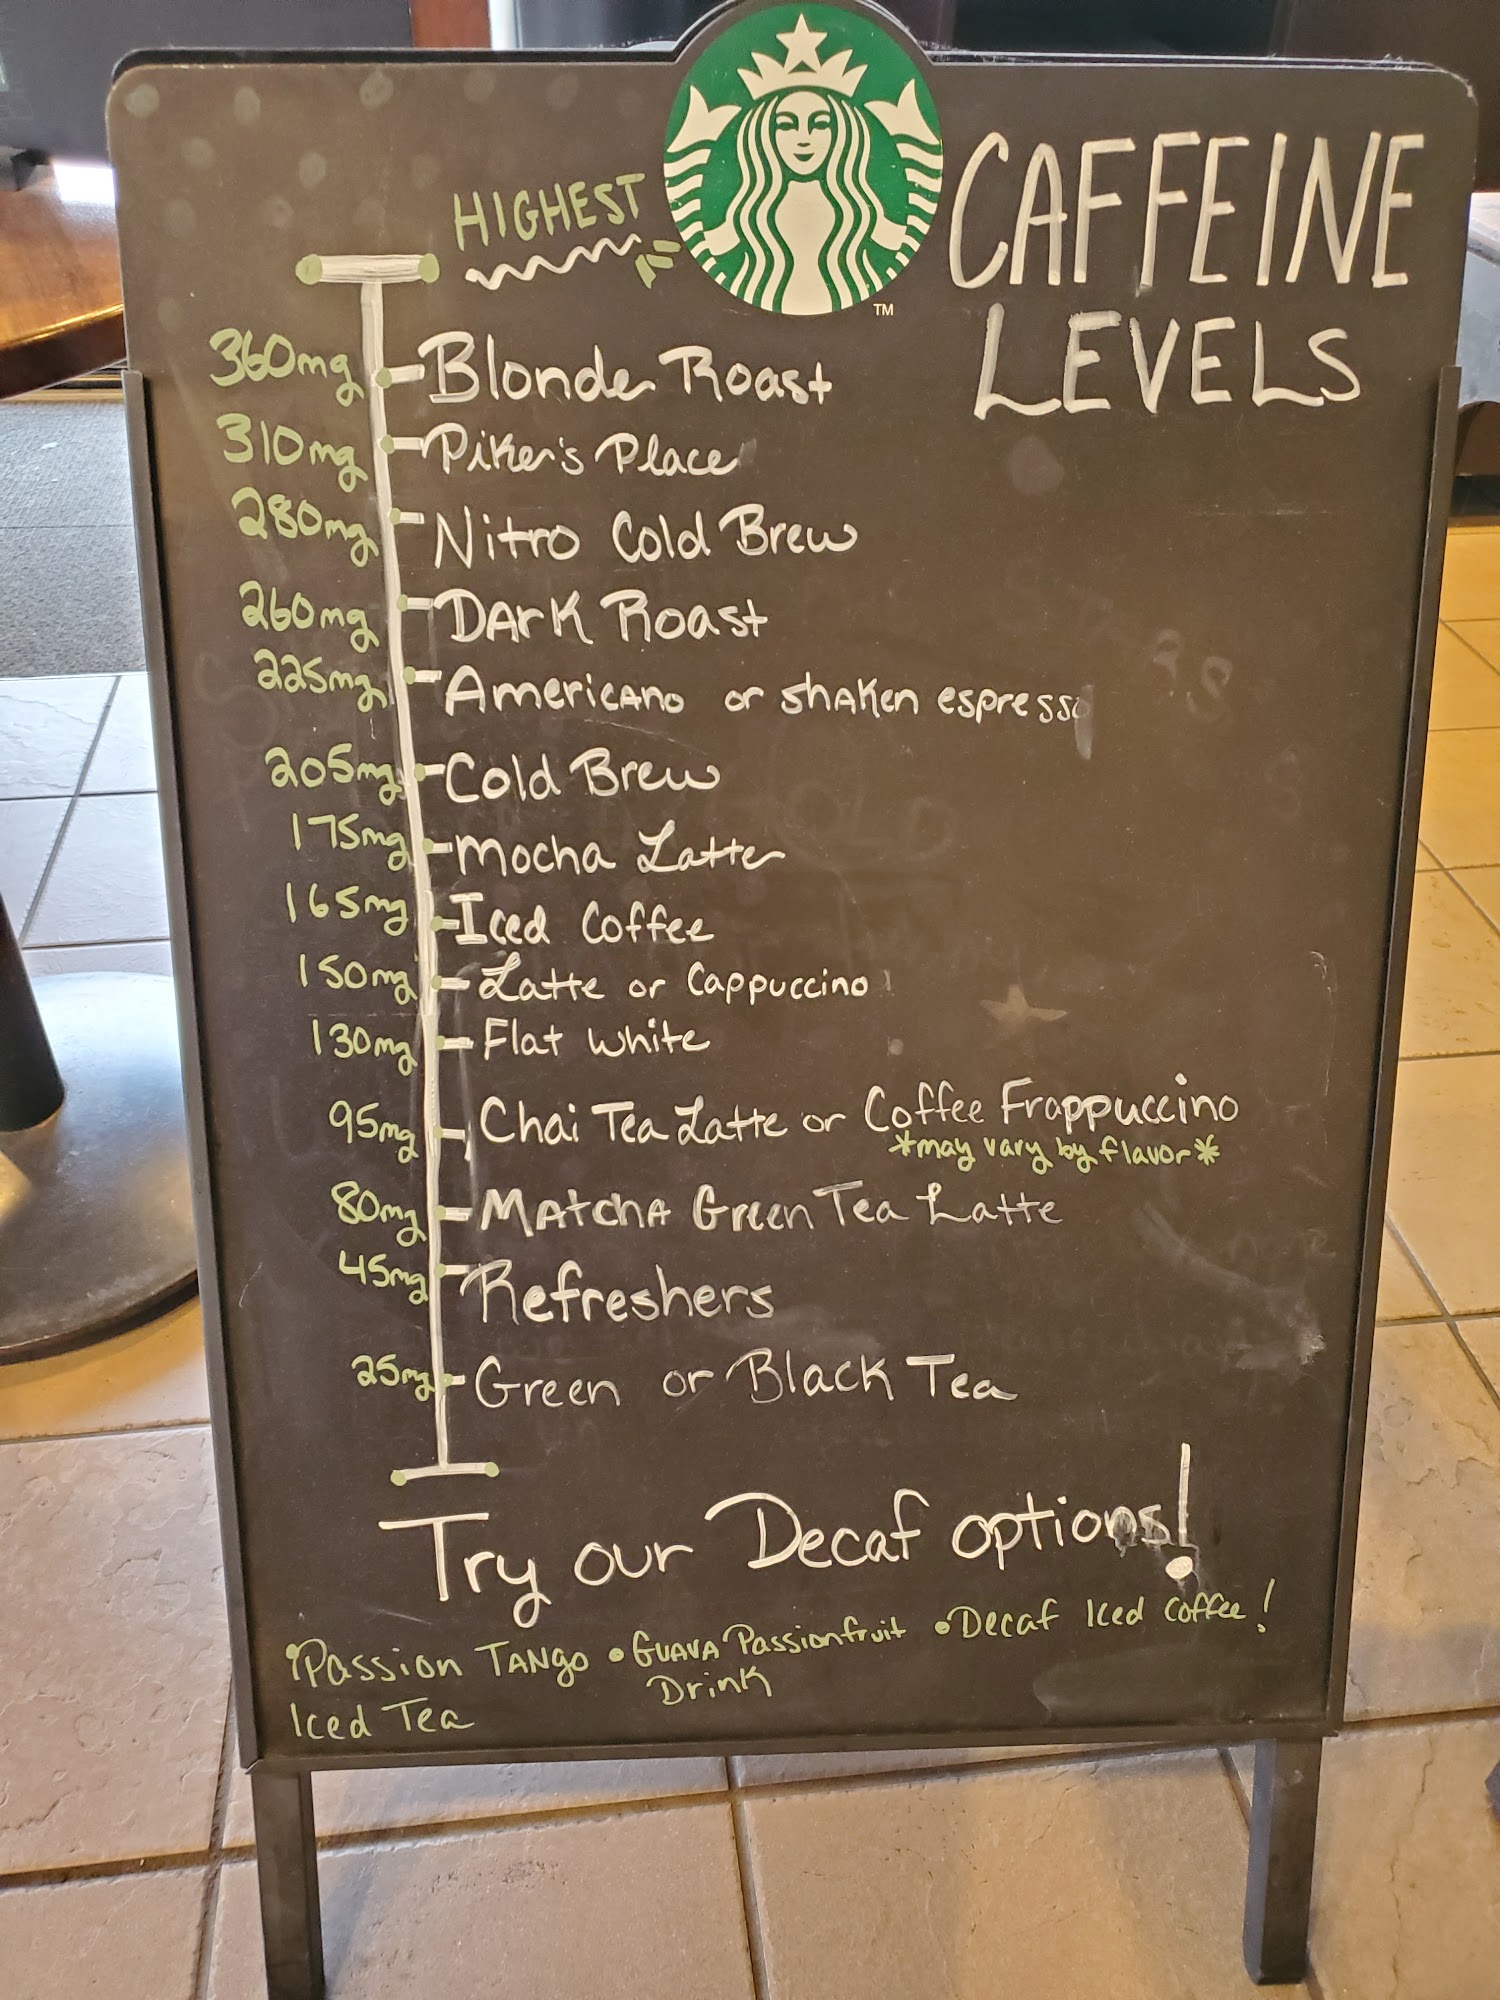 HIGHEST
CAFFEINE
LEVELS
TM
360mg Blonde Roast
310mg Piker's Place
280mg Nitro Cold Brew
260mg Dark Roast
225mg Americano or shaken espresso
205mg Cold Brew
175mg Mocha Latte
165mg Iced Coffee
150mg Latte or Cappuccino
130mg Flat White
95mg Chai Tea Latte or Coffee Frappuccino
*may vary by flavor*
80mg Matcha Green Tea Latte
45mg Refreshers
25mg Green or Black Tea
Try our Decaf options!
• Passion Tango • Guava Passionfruit • Decaf Iced Coffee!
Iced Tea Drink